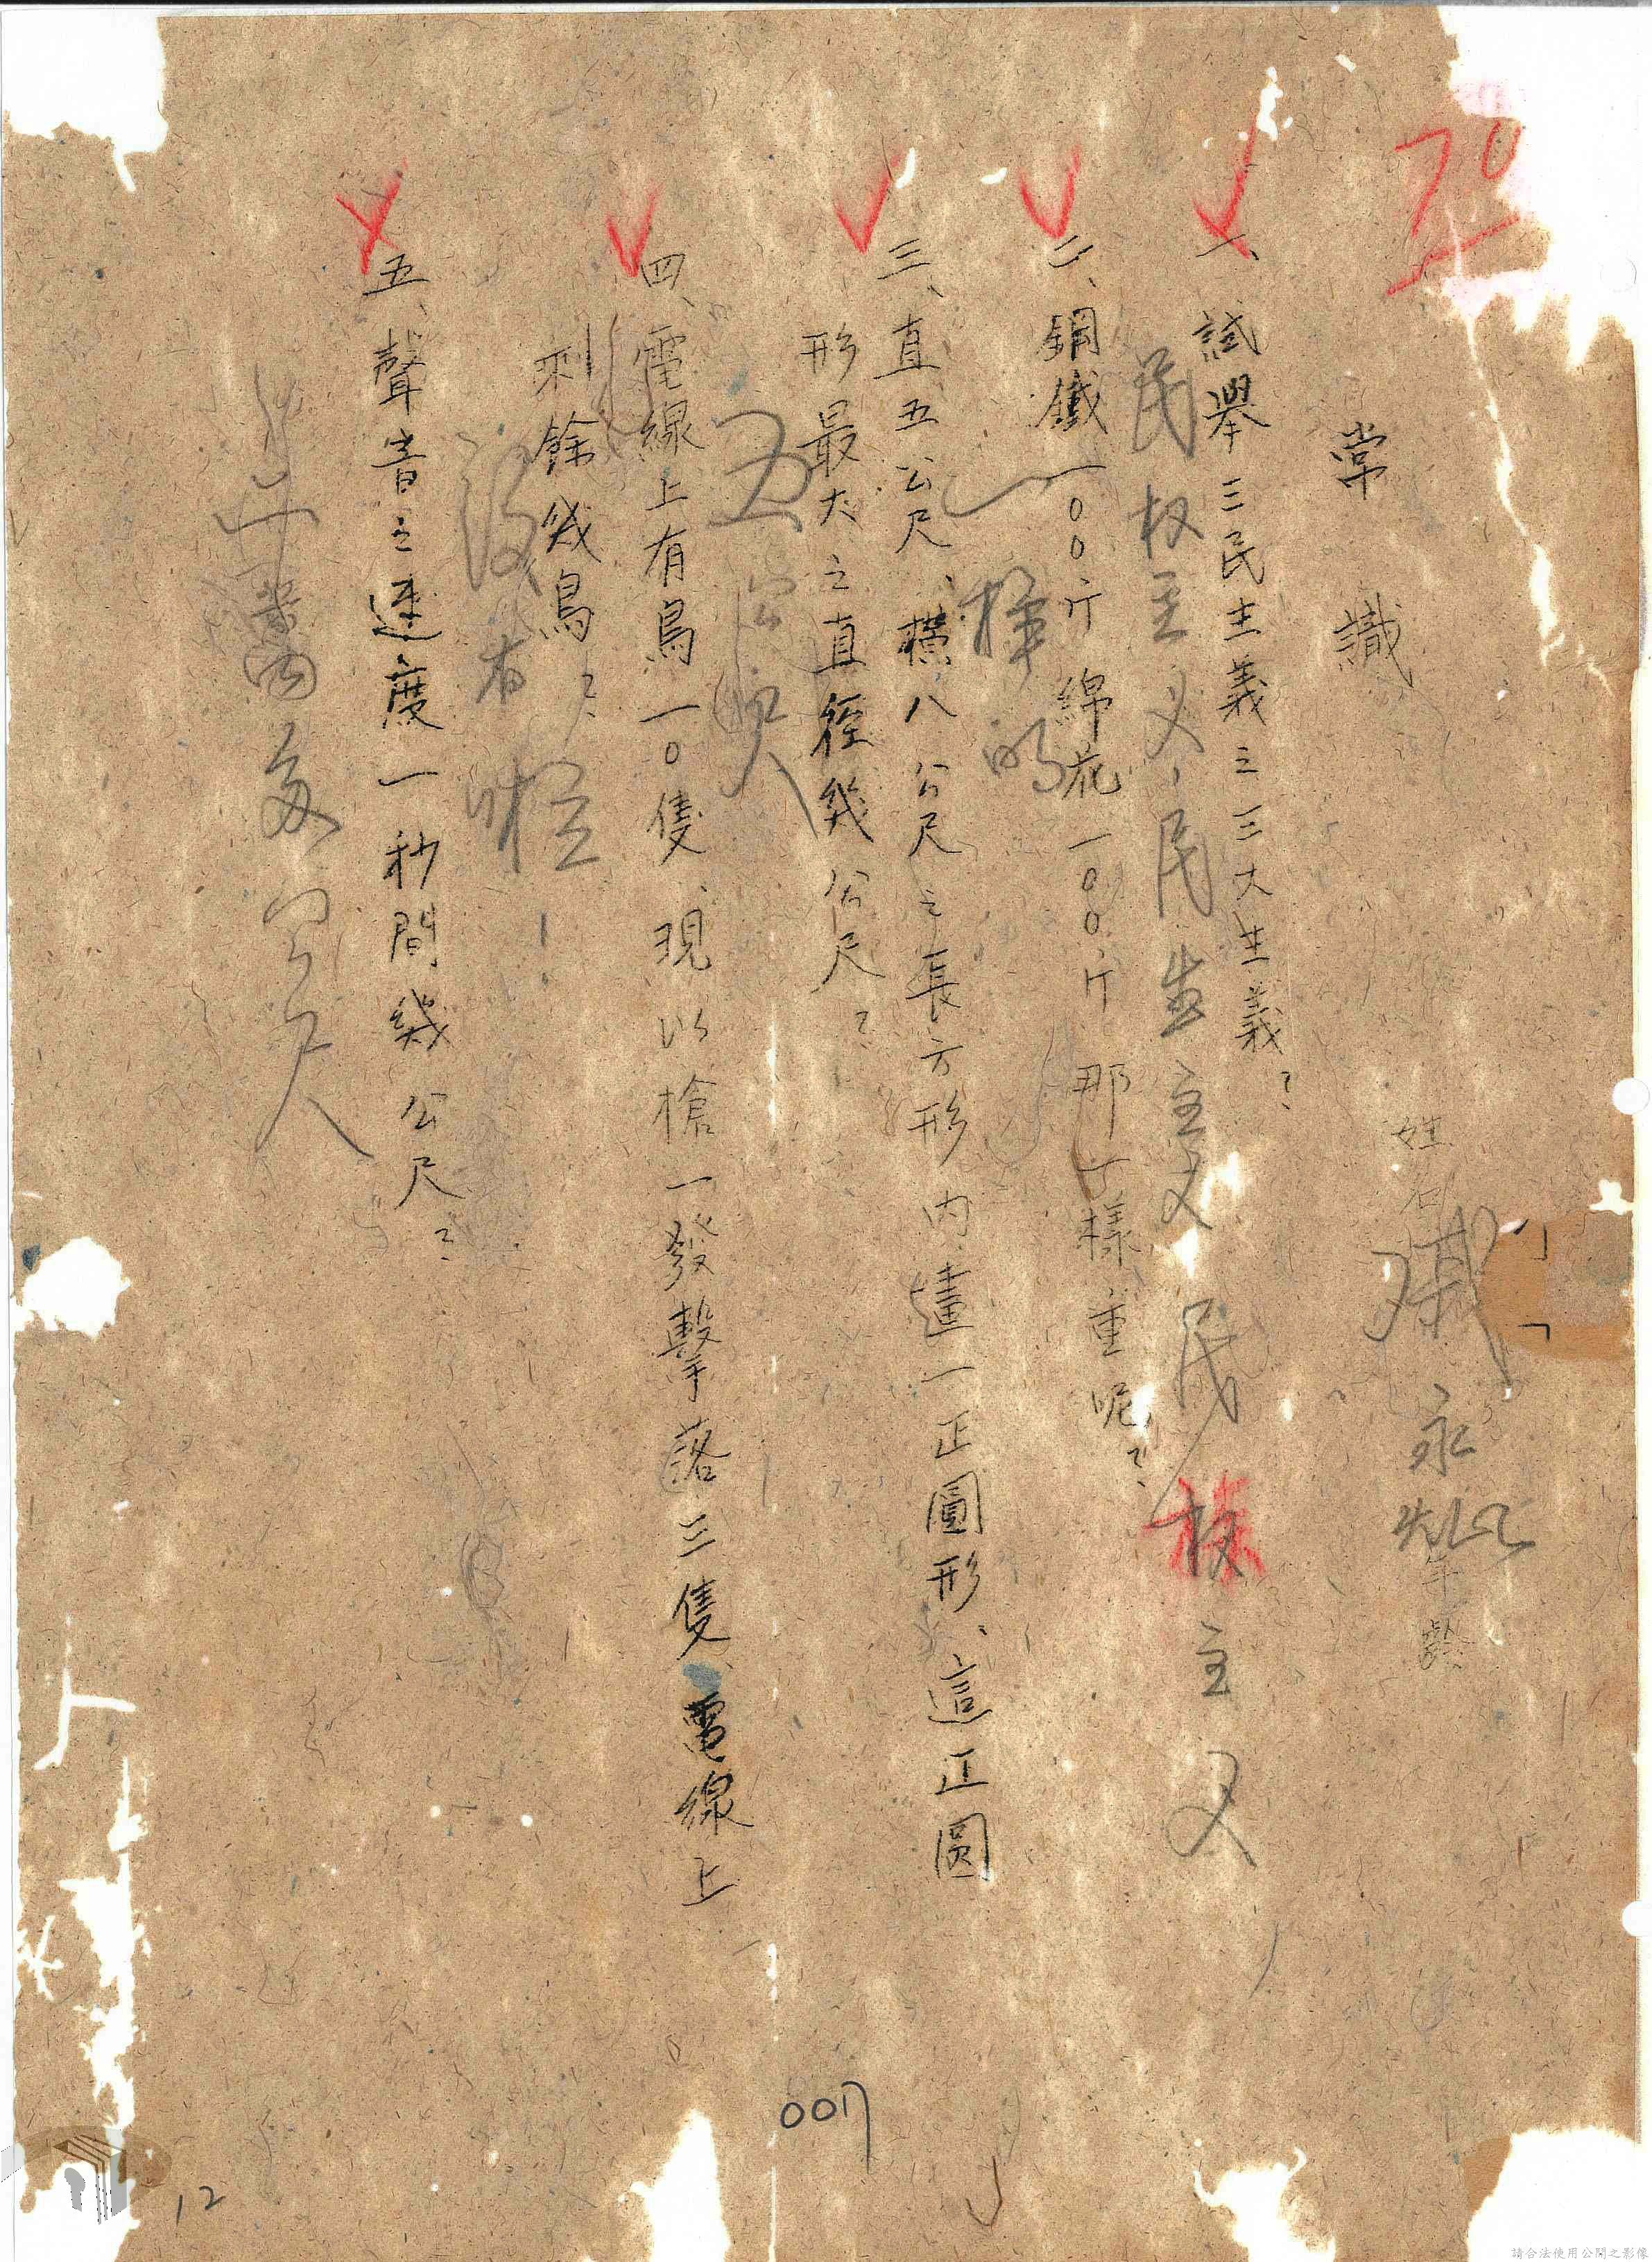 70
常識
姓名 永 年齡
一、試舉三民主義之三大主義?
民权主义,民生主义 民族主义
二、銅鐵一〇〇斤綿花一〇〇斤那一樣重呢?
一樣的
三、直五公尺、横八公尺之長方形内畫一正圓形、這正圓
形最大之直徑幾公尺?
五公尺
四、電線上有鳥一〇隻、現以槍一發擊落三隻、電線上
剩餘幾鳥?
沒有啦!
五、聲音之速度一秒間幾公尺?
公尺
0017
12
請合法使用公開之影像